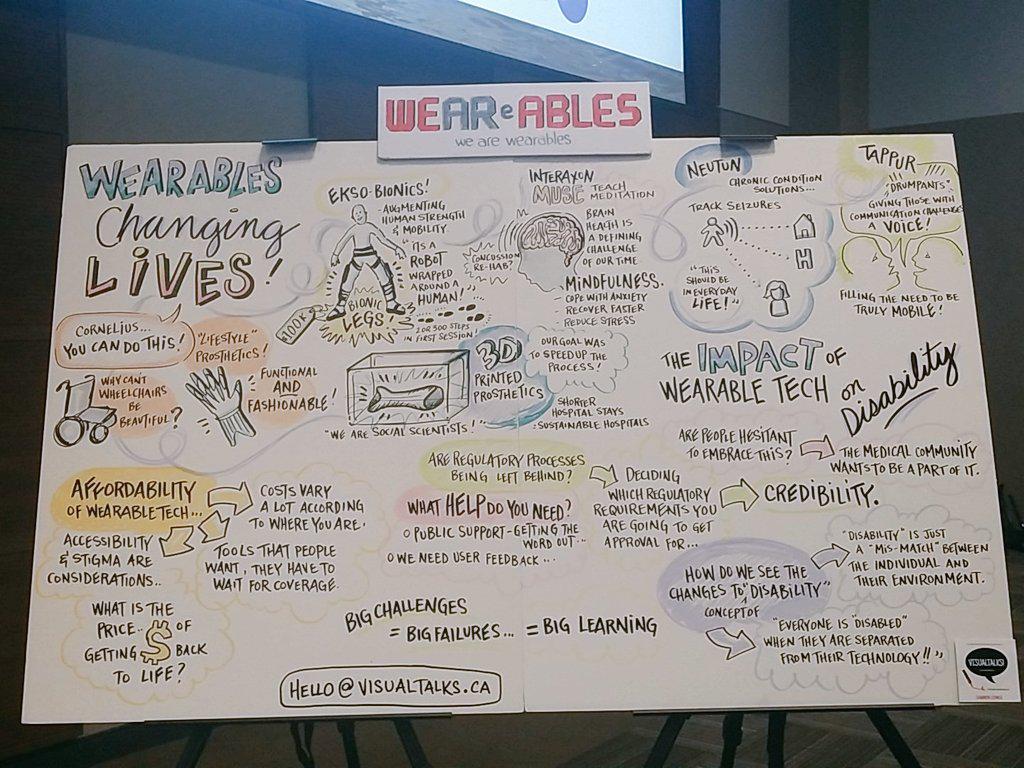 WEAReABLES
we are wearables
WEARABLES
Changing
LIVES!
CORNELIUS...
YOU CAN DO THIS!
"LIFESTYLE"
PROSTHETICS!
WHY CAN'T
WHEELCHAIRS
BE
BEAUTIFUL?
FUNCTIONAL
AND
FASHIONABLE!
EKSO-BIONICS!
-AUGMENTING
HUMAN STRENGTH
& MOBILITY.
"ITS A
ROBOT
WRAPPED
AROUND A
HUMAN!"
100K
BIONIC
LEGS!
2 OR 300 STEPS
IN FIRST SESSION!
"WE ARE SOCIAL SCIENTISTS!"
INTERAXON
MUSE TEACH
MEDITATION
CONCUSSION
RE-HAB?
BRAIN
HEALTH IS
A DEFINING
CHALLENGE
OF OUR TIME
MINDFULNESS.
-COPE WITH ANXIETY
-RECOVER FASTER
-REDUCE STRESS
3D
PRINTED
PROSTHETICS
OUR GOAL WAS
TO SPEED UP THE
PROCESS!
-SHORTER
HOSPITAL STAYS
-SUSTAINABLE HOSPITALS
NEUTUN
CHRONIC CONDITION
SOLUTIONS...
TRACK SEIZURES
H
"THIS
SHOULD BE
IN EVERYDAY
LIFE!"
TAPPUR
"DRUMPANTS"
GIVING THOSE WITH
COMMUNICATION CHALLENGES
A VOICE!
FILLING THE NEED TO BE
TRULY MOBILE!
THE IMPACT OF
WEARABLE TECH
on
Disability
ARE PEOPLE HESITANT
TO EMBRACE THIS?
THE MEDICAL COMMUNITY
WANTS TO BE A PART OF IT.
AFFORDABILITY
OF WEARABLE TECH...
COSTS VARY
A LOT ACCORDING
TO WHERE YOU ARE.
ACCESSIBILITY
& STIGMA ARE
CONSIDERATIONS..
TOOLS THAT PEOPLE
WANT, THEY HAVE TO
WAIT FOR COVERAGE.
WHAT IS THE
PRICE.. $ OF
GETTING BACK
TO LIFE?
ARE REGULATORY PROCESSES
BEING LEFT BEHIND?
DECIDING
WHICH REGULATORY
REQUIREMENTS YOU
ARE GOING TO GET
APPROVAL FOR...
CREDIBILITY.
WHAT HELP DO YOU NEED?
O PUBLIC SUPPORT-GETTING THE
WORD OUT...
O WE NEED USER FEEDBACK...
HOW DO WE SEE THE
CHANGES TO "DISABILITY"
CONCEPT OF
"DISABILITY" IS JUST
A "MIS-MATCH" BETWEEN
THE INDIVIDUAL AND
THEIR ENVIRONMENT.
"EVERYONE IS "DISABLED"
WHEN THEY ARE SEPARATED
FROM THEIR TECHNOLOGY!!"
BIG CHALLENGES
= BIG FAILURES... = BIG LEARNING
HELLO@VISUALTALKS.CA
VISUALTALKS!